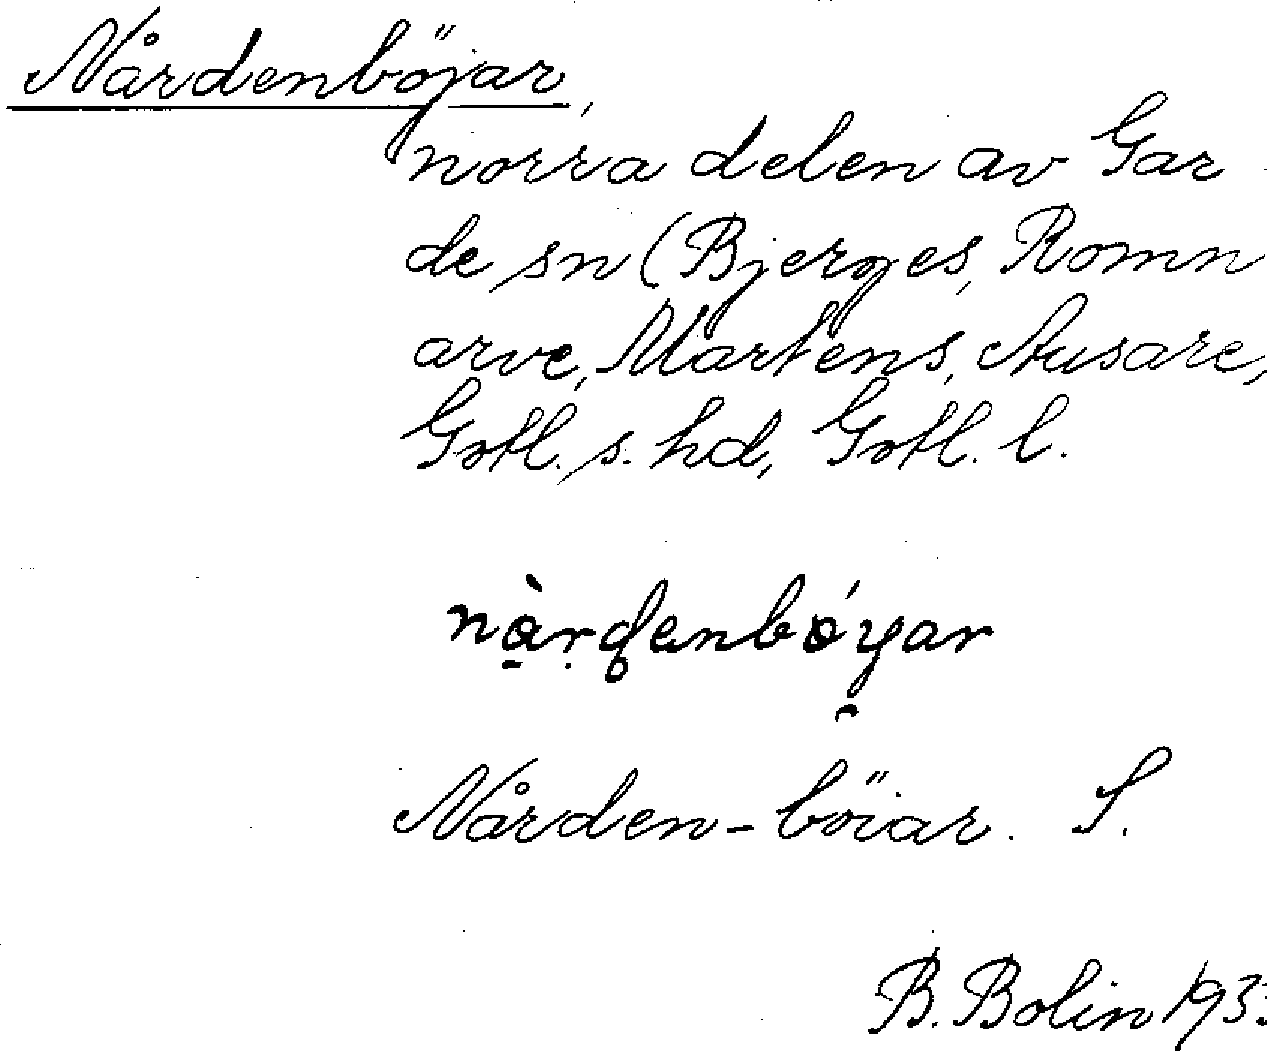 Nårdenböjar,
norra delen av Gar-
de sn (Bjerges, Romn
arve, Martens, Ausare,
Gotl. s. hd, Gotl. l.
Nården-böiar. S.
B. Bolin